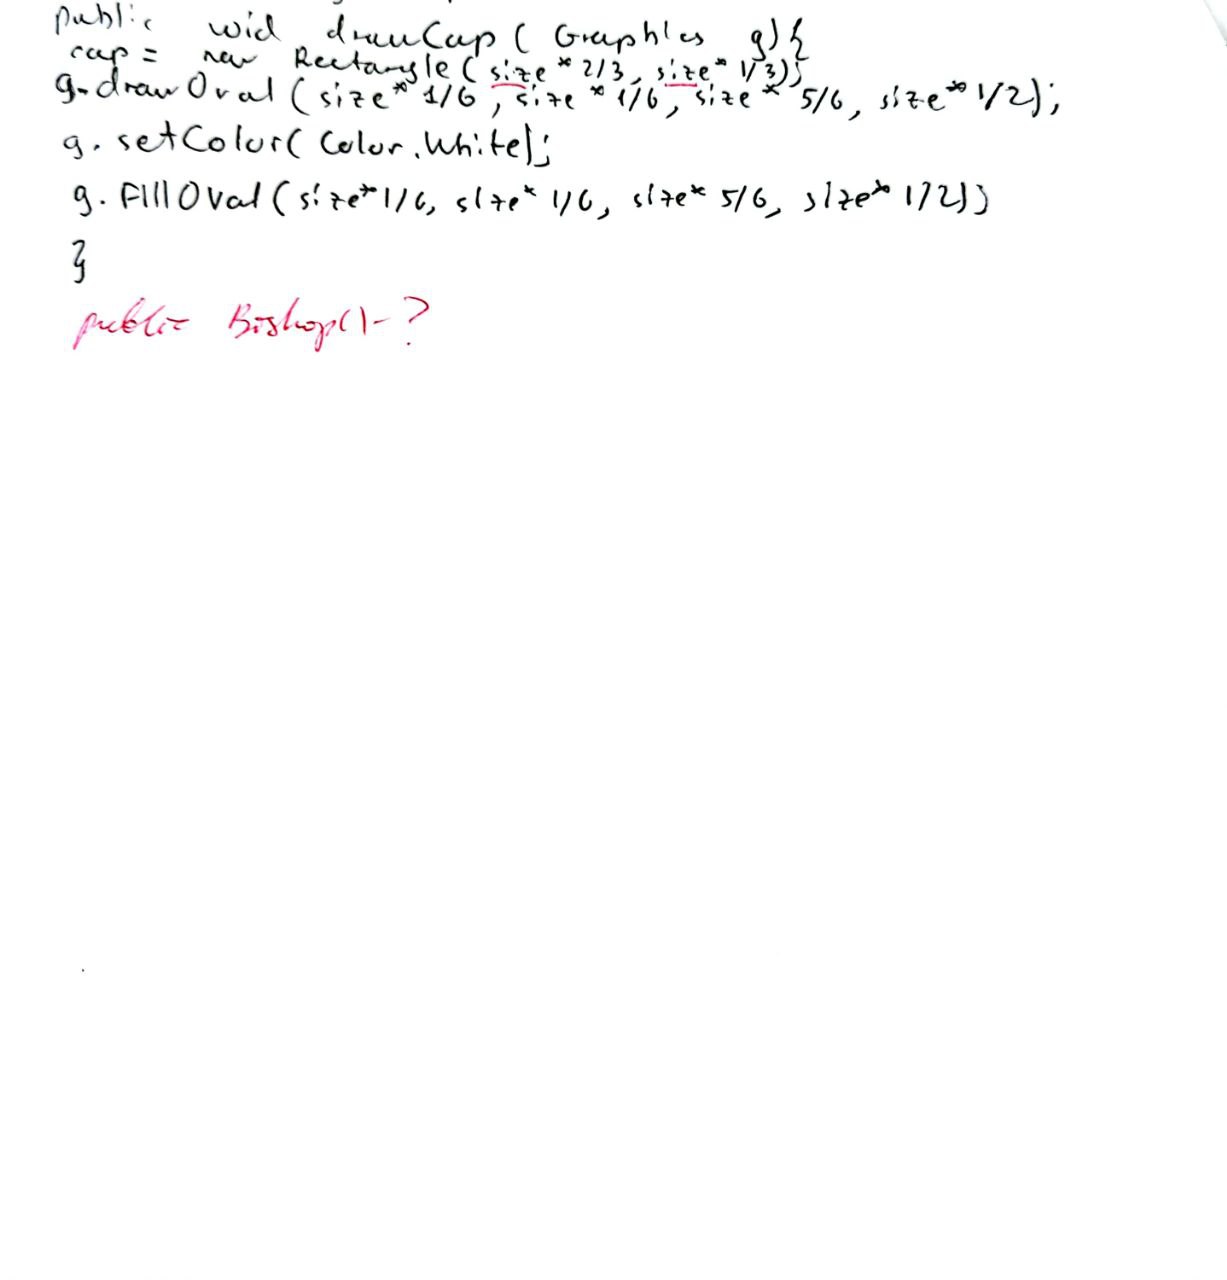 public void drawCap ( Graphics g) {
cap = new Rectangle ( size * 2/3, size * 1/3);
g.drawOval ( size * 1/6 , size * 1/6 , size * 5/6, size * 1/2);
g. setColor( Color.White);
g. FillOval ( size * 1/6, size * 1/6, size * 5/6, size * 1/2);
}
public Bishop() - ?